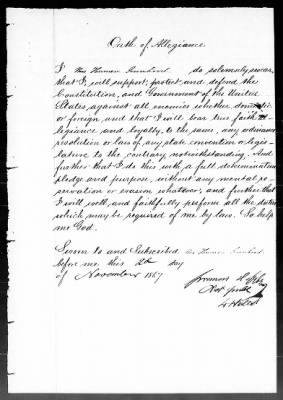 Oath of Allegiance.
I do solemnly swear,
that I will support, protect, and defend the
Constitution, and Government of the United
States against all enemies whether domestic
or foreign, and that I will bear true faith al-
legiance and loyalty, to the same, any ordinance
resolution or law of any state convention or legis-
lature to the contrary notwithstanding. And
further that I do this with a full determination
pledge and purpose, without any mental re-
servation or evasion whatever, and further that
I will well, and faithfully perform all the duties
which may be required of me by law. So help
me God.
Sworn to and Subscribed
before me this day
of November 1867